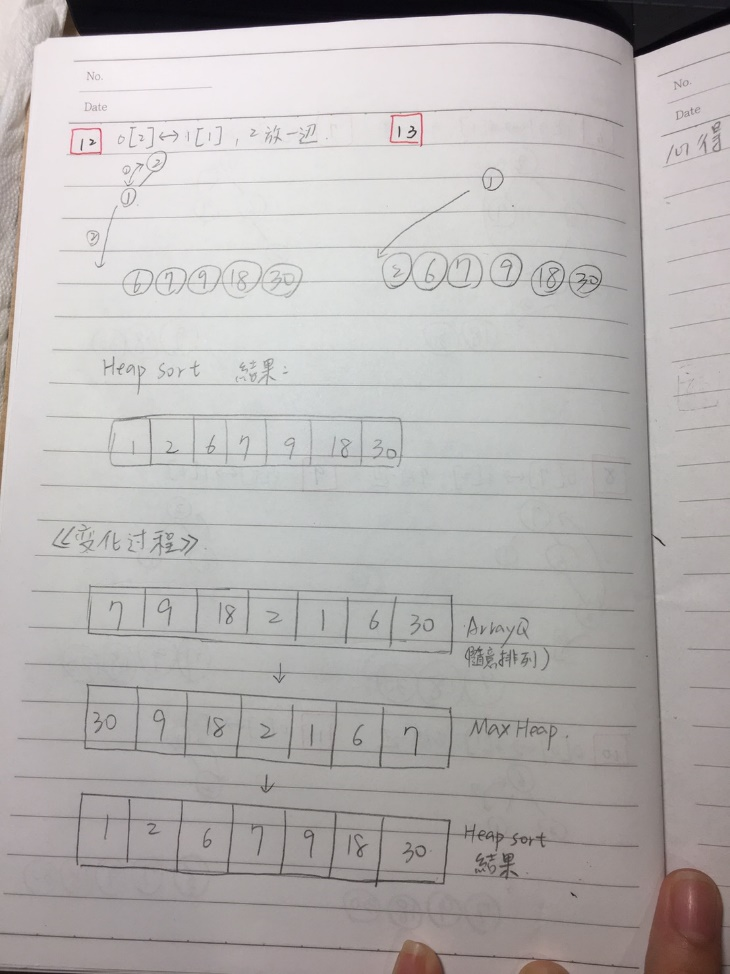 No.
Date
12 0[2]↔1[1], 2放一边.
13
0 2
1
2
6 7 9 18 30
1
2 6 7 9 18 30
Heap sort 結果:
1 2 6 7 9 18 30
《变化过程》
7 9 18 2 1 6 30 ArrayQ
(隨意排列)
30 9 18 2 1 6 7 Max Heap.
1 2 6 7 9 18 30 Heap sort
結果.
No.
Date